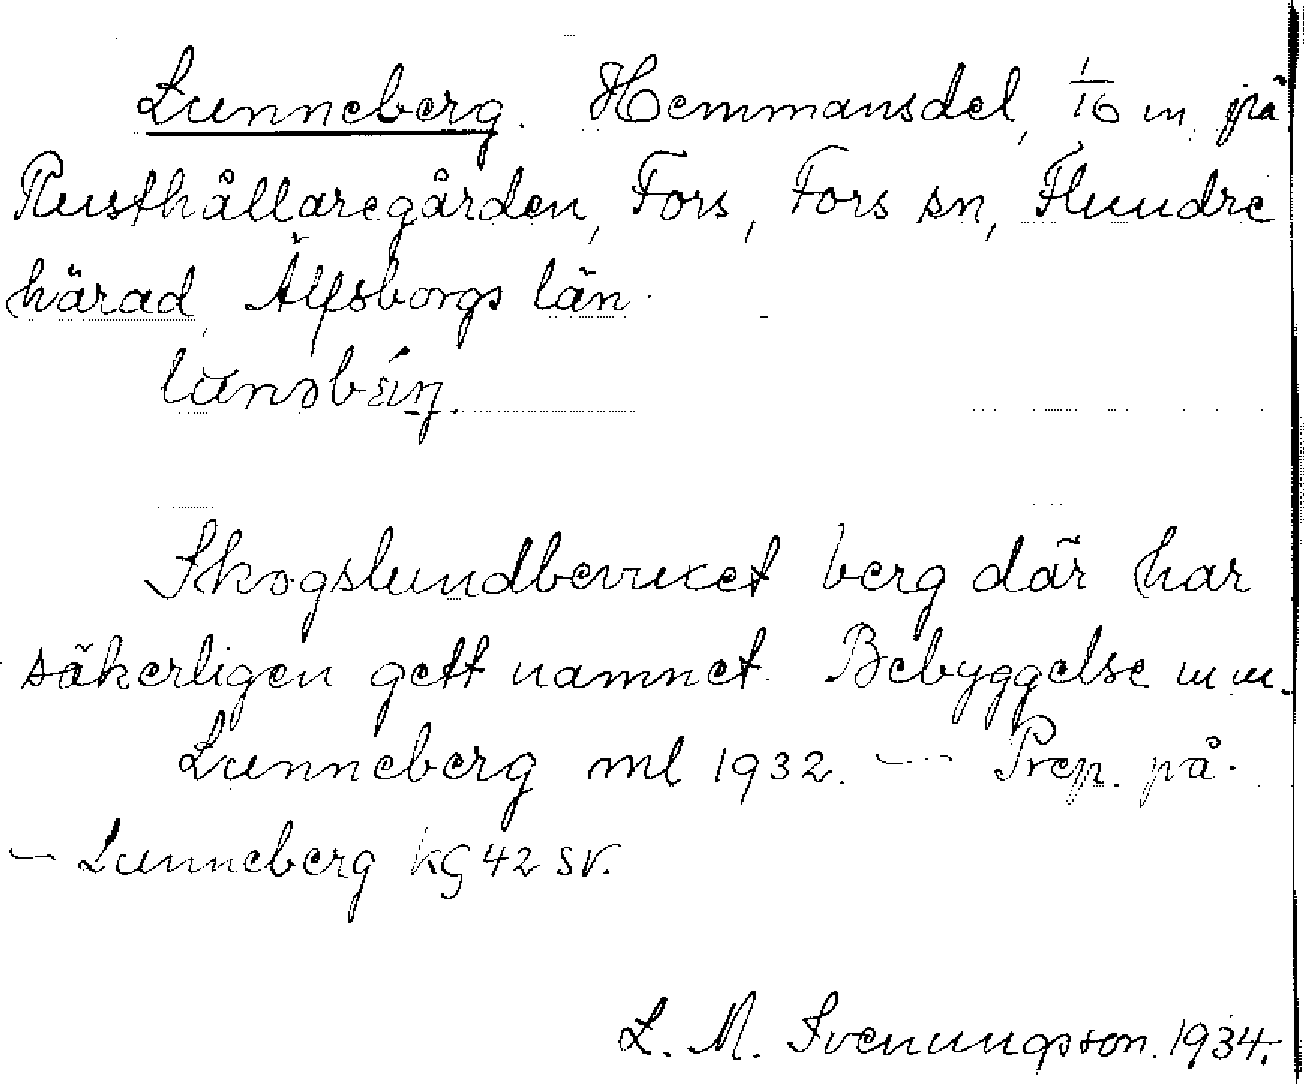 Lunneberg. Hemmansdel, 1/16 m, på
Rusthållaregården, Fors, Fors sn, Flundre
härad, Älfsborgs län.
Skogslundbevuxet berg där har
säkerligen gett namnet. Bebyggelse m m.
Lunneberg ml 1932. — Prep. på.
— Lunneberg kg 42 SV.
L. M. Svenungsson. 1934.